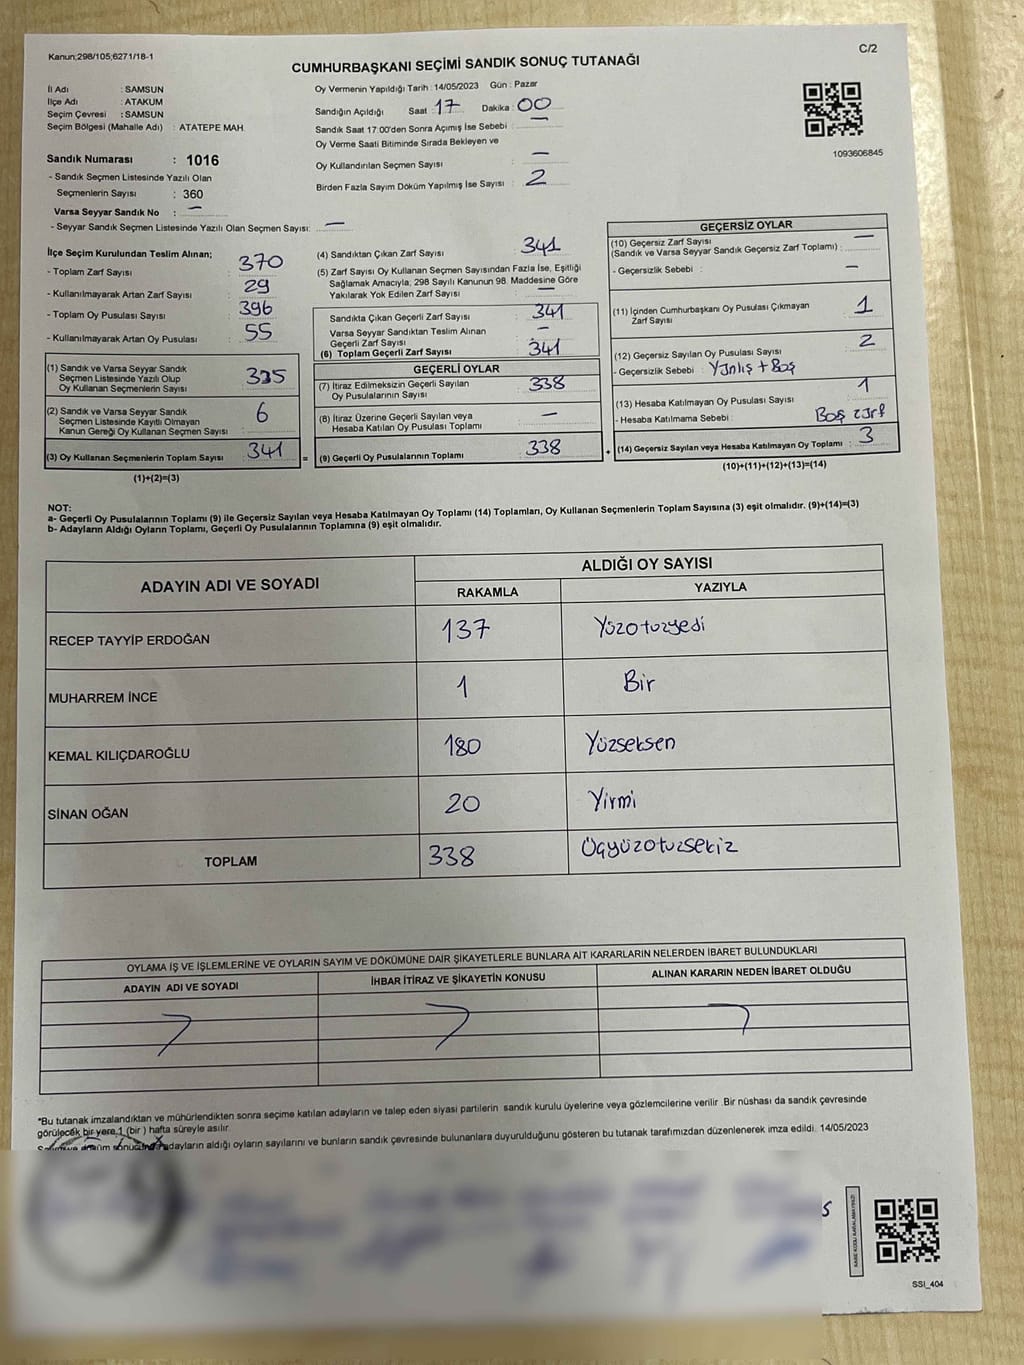 Kanun;298/105;6271/18-1
C/2
CUMHURBAŞKANI SEÇİMİ SANDIK SONUÇ TUTANAĞI
İl Adı : SAMSUN
İlçe Adı : ATAKUM
Seçim Çevresi : SAMSUN
Seçim Bölgesi (Mahalle Adı) : ATATEPE MAH.
Sandık Numarası : 1016
- Sandık Seçmen Listesinde Yazılı Olan
Seçmenlerin Sayısı : 360
Varsa Seyyar Sandık No : —
- Seyyar Sandık Seçmen Listesinde Yazılı Olan Seçmen Sayısı: —
Oy Vermenin Yapıldığı Tarih : 14/05/2023 Gün : Pazar
Sandığın Açıldığı Saat : 17 Dakika : 00
Sandık Saat 17:00'den Sonra Açımış İse Sebebi : —
Oy Verme Saati Bitiminde Sırada Bekleyen ve
Oy Kullandırılan Seçmen Sayısı : —
Birden Fazla Sayım Döküm Yapılmış İse Sayısı : 2
1093606845
İlçe Seçim Kurulundan Teslim Alınan;
- Toplam Zarf Sayısı : 370
- Kullanılmayarak Artan Zarf Sayısı : 29
- Toplam Oy Pusulası Sayısı : 396
- Kullanılmayarak Artan Oy Pusulası : 55
(1) Sandık ve Varsa Seyyar Sandık
Seçmen Listesinde Yazılı Olup
Oy Kullanan Seçmenlerin Sayısı : 335
(2) Sandık ve Varsa Seyyar Sandık
Seçmen Listesinde Kayıtlı Olmayan
Kanun Gereği Oy Kullanan Seçmen Sayısı : 6
(3) Oy Kullanan Seçmenlerin Toplam Sayısı : 341
(1)+(2)=(3)
(4) Sandıktan Çıkan Zarf Sayısı : 341
(5) Zarf Sayısı Oy Kullanan Seçmen Sayısından Fazla İse, Eşitliği
Sağlamak Amacıyla, 298 Sayılı Kanunun 98. Maddesine Göre
Yakılarak Yok Edilen Zarf Sayısı : —
Sandıkta Çıkan Geçerli Zarf Sayısı : 341
Varsa Seyyar Sandıktan Teslim Alınan
Geçerli Zarf Sayısı : —
(6) Toplam Geçerli Zarf Sayısı : 341
GEÇERLİ OYLAR
(7) İtiraz Edilmeksizin Geçerli Sayılan
Oy Pusulasının Sayısı : 338
(8) İtiraz Üzerine Geçerli Sayılan veya
Hesaba Katılan Oy Pusulası Toplamı : —
= (9) Geçerli Oy Pusulalarının Toplamı : 338 +
GEÇERSİZ OYLAR
(10) Geçersiz Zarf Sayısı : —
(Sandık ve Varsa Seyyar Sandık Geçersiz Zarf Toplamı) :
- Geçersizlik Sebebi : —
(11) İçinden Cumhurbaşkanı Oy Pusulası Çıkmayan
Zarf Sayısı : 1
(12) Geçersiz Sayılan Oy Pusulası Sayısı : 2
- Geçersizlik Sebebi : Yanlış + Boş
(13) Hesaba Katılmayan Oy Pusulası Sayısı : 1
- Hesaba Katılmama Sebebi : Boş zarf
(14) Geçersiz Sayılan veya Hesaba Katılmayan Oy Toplamı : 3
(10)+(11)+(12)+(13)=(14)
NOT:
a- Geçerli Oy Pusulalarının Toplamı (9) ile Geçersiz Sayılan veya Hesaba Katılmayan Oy Toplamı (14) Toplamları, Oy Kullanan Seçmenlerin Toplam Sayısına (3) eşit olmalıdır. (9)+(14)=(3)
b- Adayların Aldığı Oyların Toplamı, Geçerli Oy Pusulalarının Toplamına (9) eşit olmalıdır.
ADAYIN ADI VE SOYADI
ALDIĞI OY SAYISI
RAKAMLA YAZIYLA
RECEP TAYYİP ERDOĞAN 137 Yüzotuzyedi
MUHARREM İNCE 1 Bir
KEMAL KILIÇDAROĞLU 180 Yüzseksen
SİNAN OĞAN 20 Yirmi
TOPLAM 338 Üçyüzotuzsekiz
OYLAMA İŞ VE İŞLEMLERİNE VE OYLARIN SAYIM VE DÖKÜMÜNE DAİR ŞİKAYETLERLE BUNLARA AİT KARARLARIN NELERDEN İBARET BULUNDUKLARI
ADAYIN ADI VE SOYADI İHBAR İTİRAZ VE ŞİKAYETİN KONUSU ALINAN KARARIN NEDEN İBARET OLDUĞU
*Bu tutanak imzalandıktan ve mühürlendikten sonra seçime katılan adayların ve talep eden siyasi partilerin sandık kurulu üyelerine veya gözlemcilerine verilir .Bir nüshası da sandık çevresinde
görülecek bir yere 1 (bir ) hafta süreyle asılır.
adayların aldığı oyların sayılarını ve bunların sandık çevresinde bulunanlara duyurulduğunu gösteren bu tutanak tarafımızdan düzenlenerek imza edildi. 14/05/2023
SSI_404